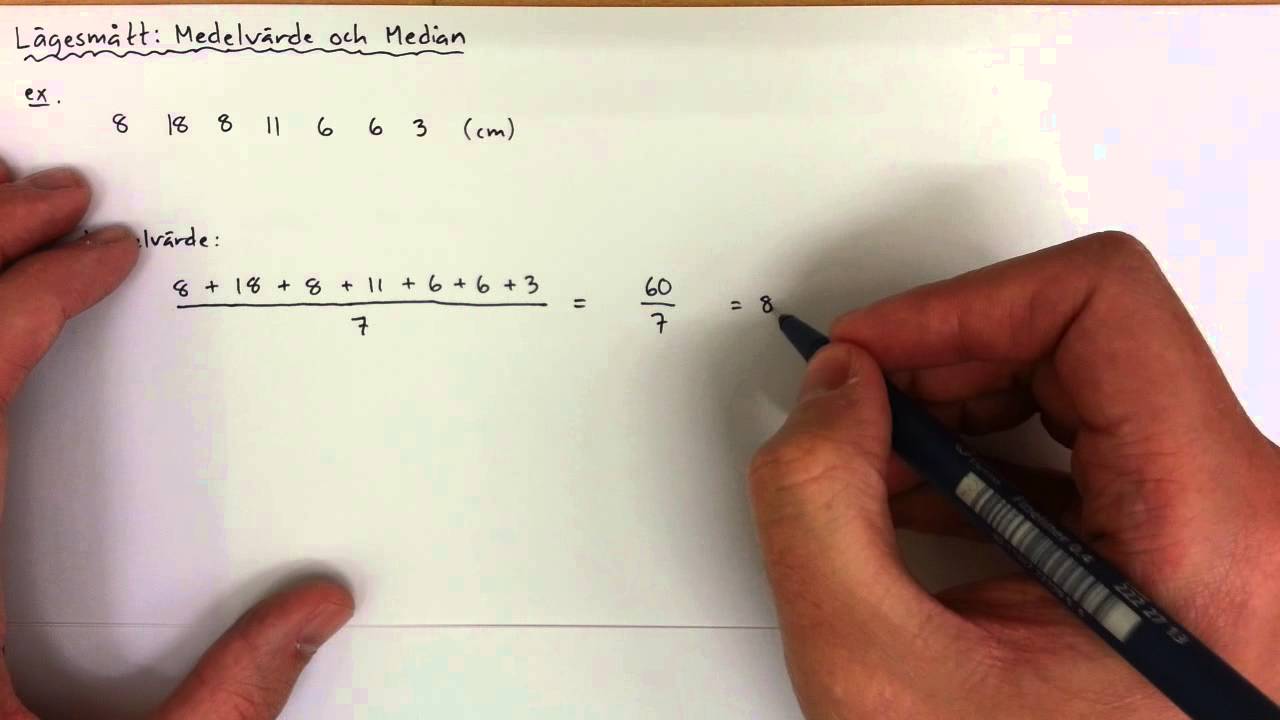 Lägesmått: Medelvärde och Median
ex.
8 18 8 11 6 6 3 (cm)
elvärde:
8 + 18 + 8 + 11 + 6 + 6 + 3 = 60 = 8
7 7